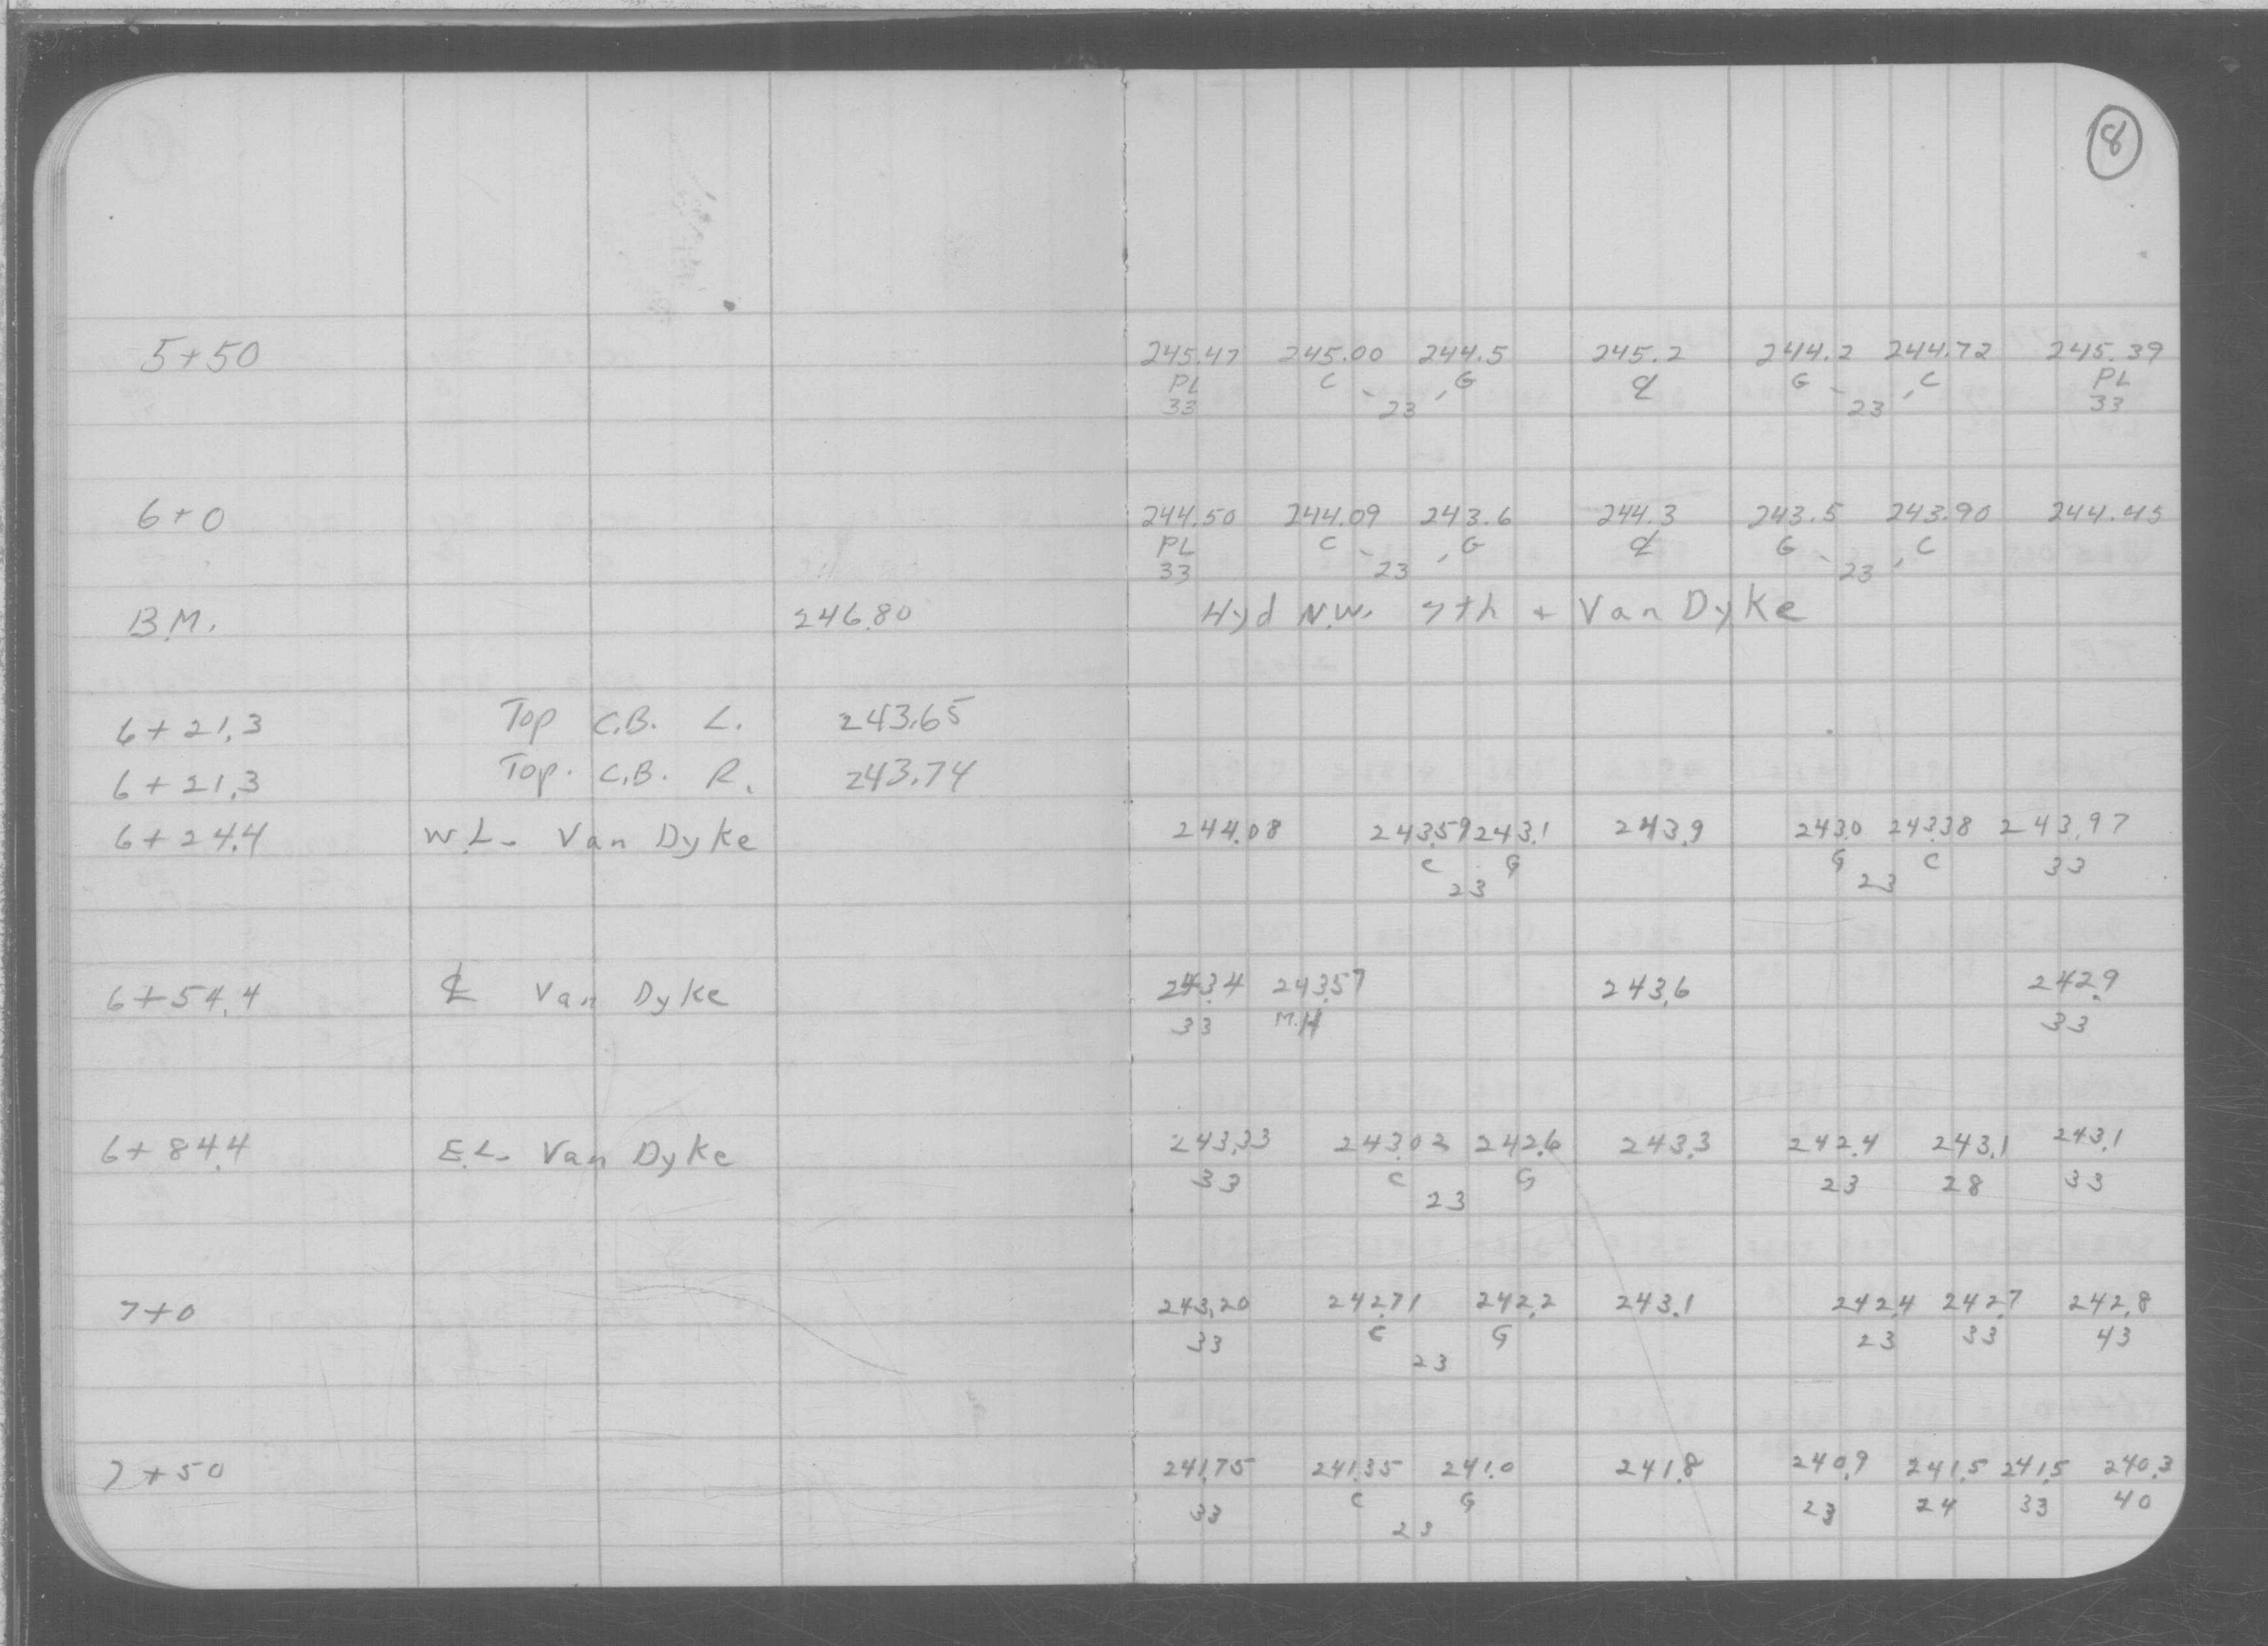 8
5+50 245.47 245.00 244.5 245.2 244.2 244.72 245.39
PL C G ℄ G C PL
33 23 23 33
6+0 244.50 244.09 243.6 244.3 243.5 243.90 244.45
PL C G ℄ G C
33 23 23
B.M. 246.80 Hyd N.W. 7th + Van Dyke
6+21.3 Top C.B. L. 243.65
6+21.3 Top. C.B. R. 243.74
6+24.4 W.L. Van Dyke 244.08 243.59 243.1 243.9 243.0 243.38 243.97
C G G C 33
23 23
6+54.4 ℄ Van Dyke 243.4 243.57 243.6 242.9
33 M.H 33
6+84.4 E.L. Van Dyke 243.33 243.02 242.6 243.3 242.4 243.1 243.1
33 C G 23 28 33
23
7+0 243.20 242.71 242.2 243.1 242.4 242.7 242.8
33 C G 23 33 43
23
7+50 241.75 241.35 241.0 241.8 240.9 241.5 241.5 240.3
33 C G 23 24 33 40
23